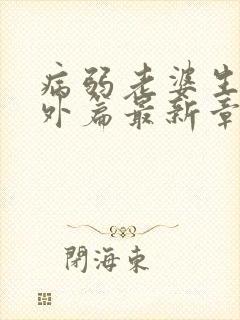 病弱老婆生
外篇最新章
閉海東